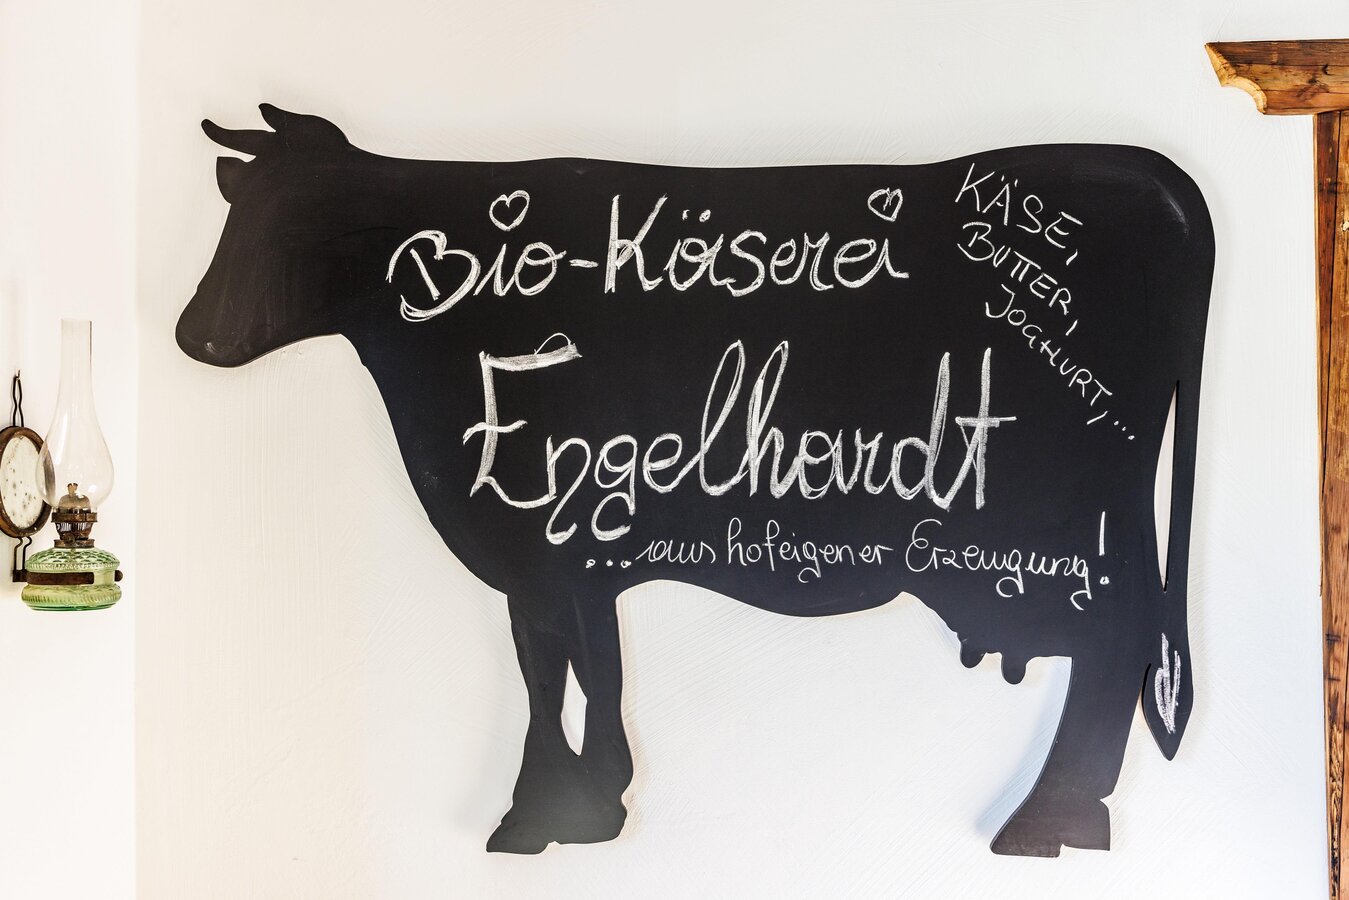 Bio-Käserei
Engelhardt
...aus hofeigener Erzeugung!
KÄSE,
BUTTER,
JOGHURT,...